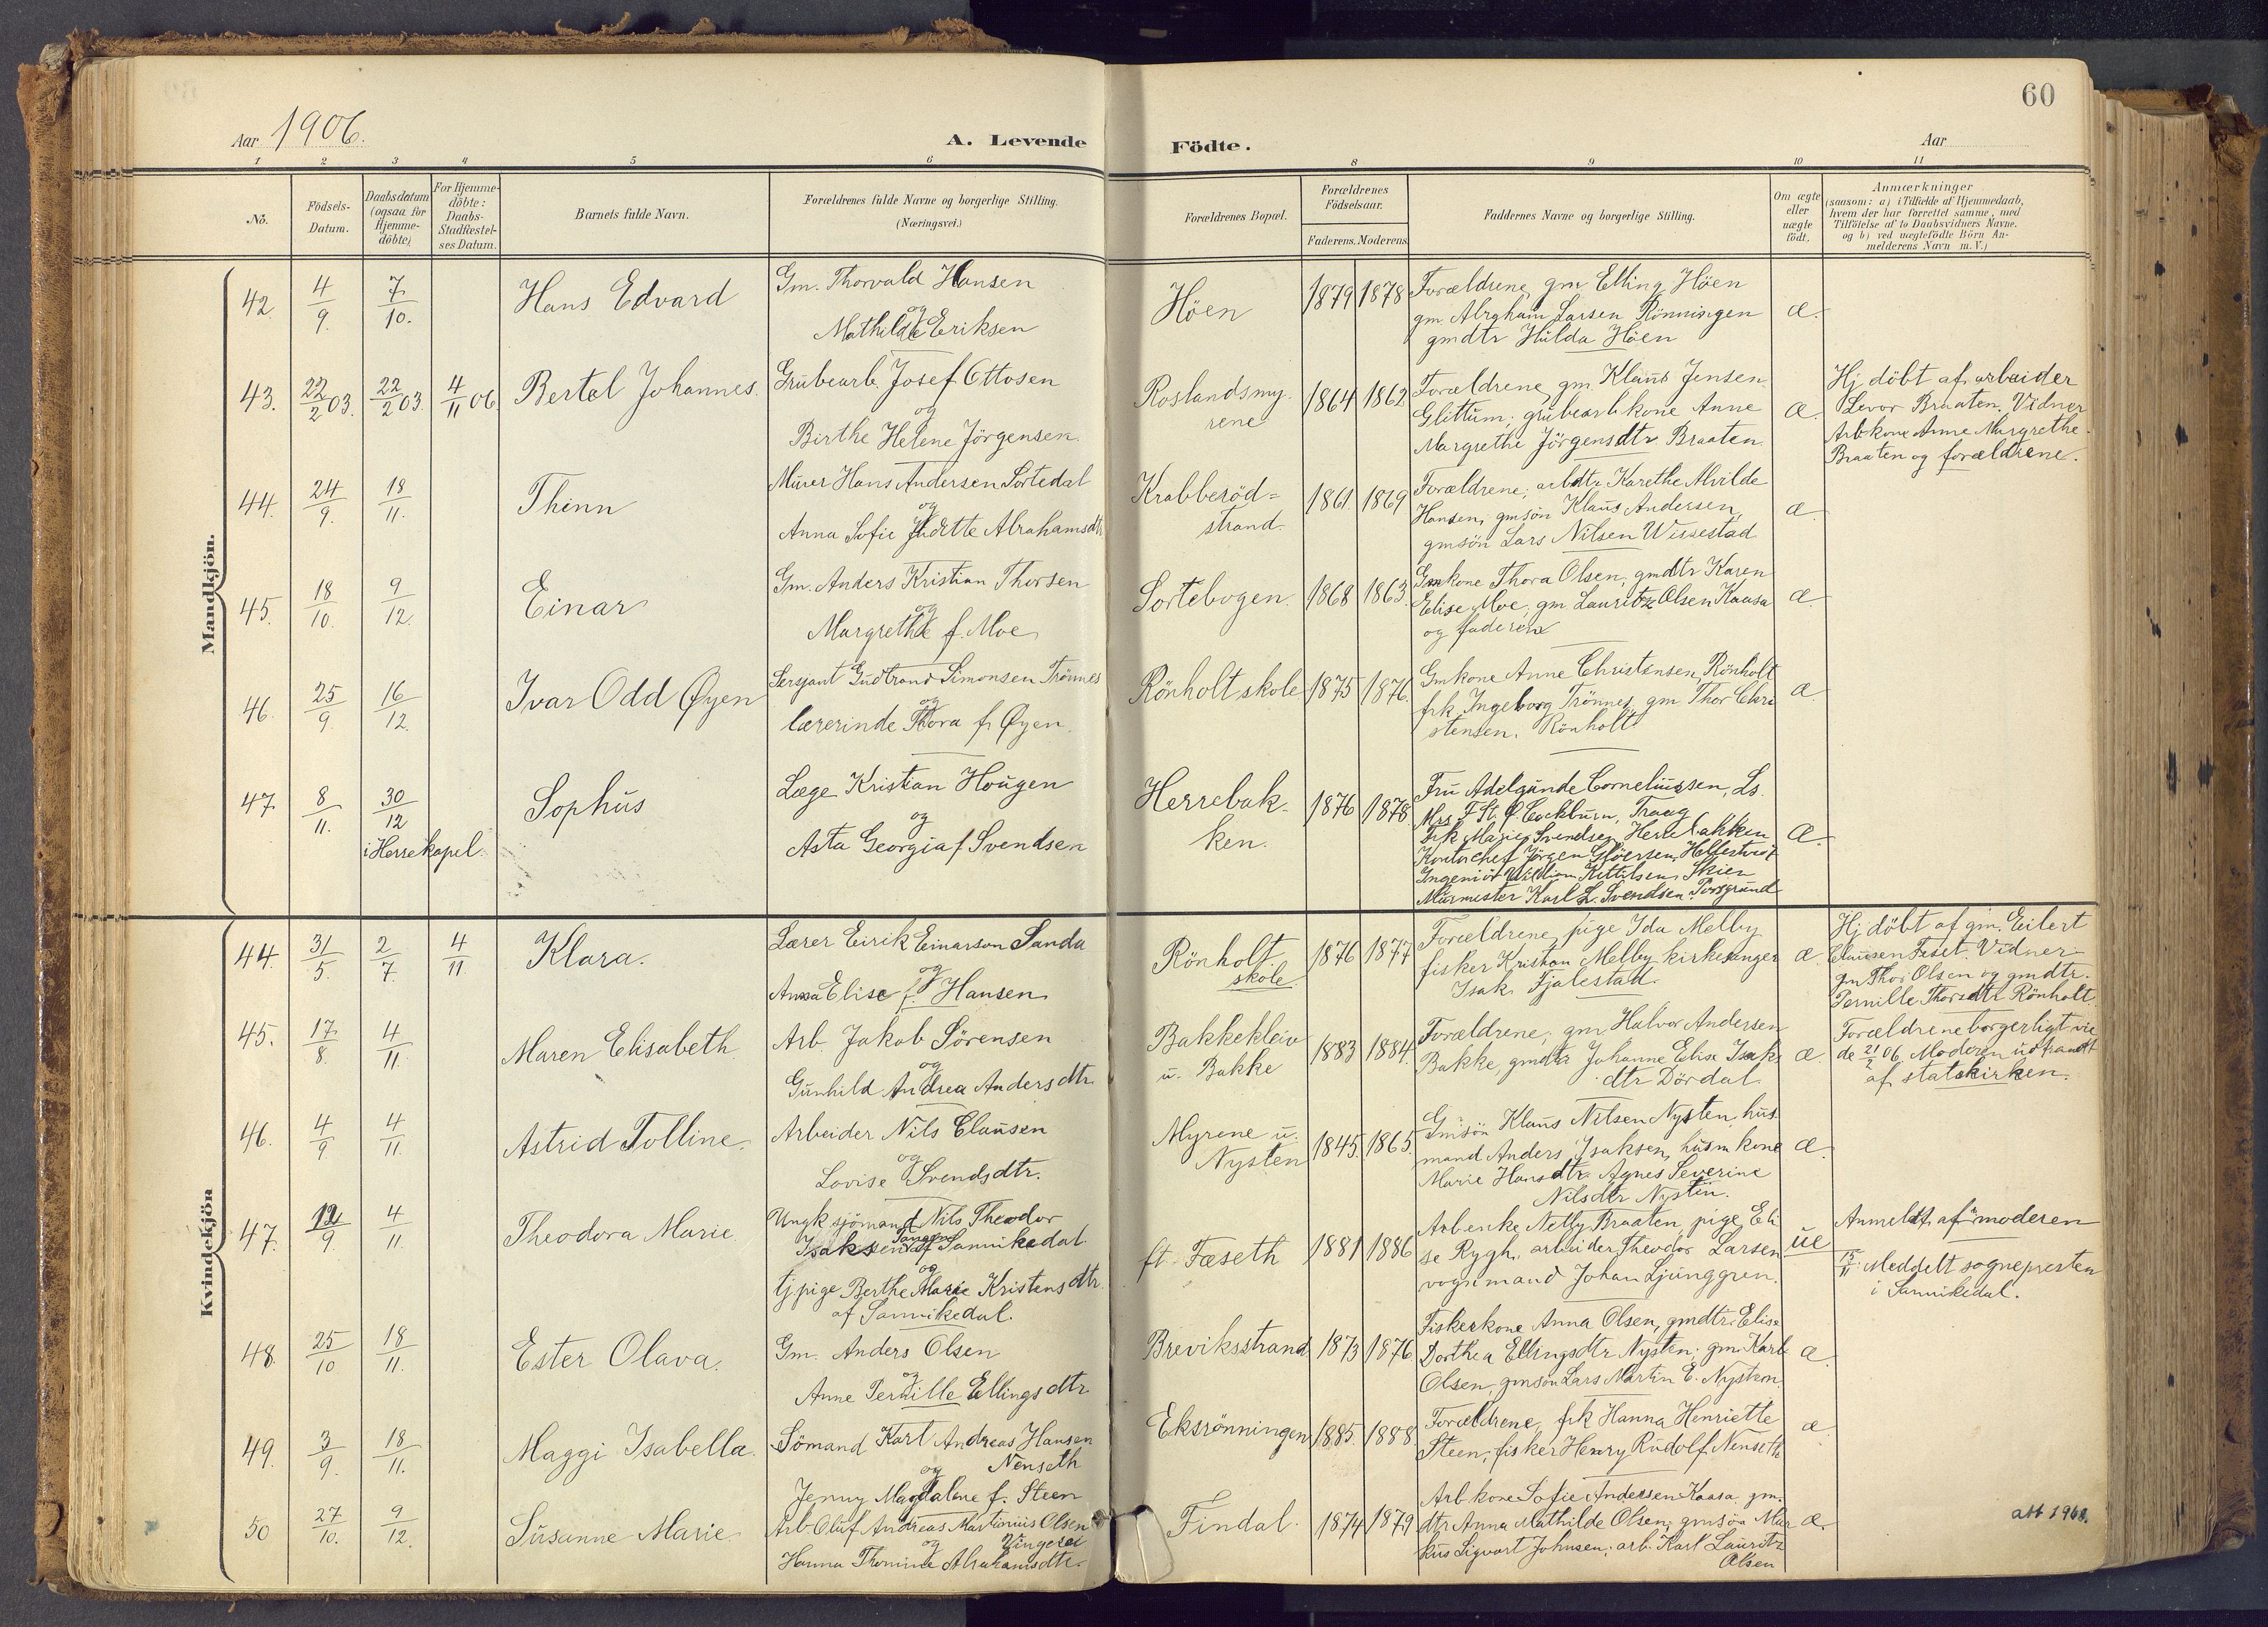 60
Aar 1906.
A. Levende Födte.
Aar
1 2 3 4 5 6 8 9 10 11
No.
Födsels-
Datum.
Daabsdatum
(ogsaa for
Hjemme-
döbte)
For Hjemme-
döbte:
Daabs-
Stadfæstel-
ses Datum.
Barnets fulde Navn.
Forældrenes fulde Navne og borgerlige Stilling.
(Næringsvei.)
Forældrenes Bopæl.
Forældrenes
Födselsaar.
Faderens. Moderens.
Faddernes Navne og borgerlige Stilling.
Om ægte
eller
uægte
födt.
Anmærkninger
(saasom: a) i Tilfælde af Hjemmedaab,
hvem der har forrettet samme, med
Tilföielse af to Daabsvidners Navne.
og b) ved uægtefödte Börn An-
melderens Navn m. V.)
Mandkjön.
42. 4/9. 7/10. Hans Edvard
Gm. Thorvald Hansen
og
Mathilde Eriksen
Höen
1879 1878
Forældrene, gm Elling Höen
gm. Abraham Larsen Rönningen
gmdtr Hulda Höen
æ.
43. 22/2 03. 22/2 03. 4/11 06 Bertel Johannes.
Grubearb. Josef Ottosen
og
Birthe Helene Jörgensen.
Roslandsmy-
rene
1864 1862
Forældrene, gm. Klaus Jensen
Glittum, grubearb.kone Anne
Margrethe Jörgensdtr Braaten
æ.
Hj döbt af arbeider
Levor Braaten. Vidner
Arb.kone Anne Margrethe
Braaten og forældrene.
44. 24/9. 18/11. Thinn
Murer Hans Andersen Sortedal
og
Anna Sofie Juditte Abrahamsdtr
Krabberöd=
strand.
1861. 1869
Forældrene; arbdtr Karethe Alvilde
Hansen, gmsön Klaus Andersen,
gmsön Lars Nilsen Wissestad
æ.
45. 18/10. 9/12. Einar
Gm. Anders Kristian Thorsen
og
Margrethe f. Moe
Sortebogen.
1868 1863.
Gmkone Thora Olsen, gmdtr Karen
Elise Moe, gm Lauritz Olsen Kaasa
og faderen
æ.
46. 25/9. 16/12. Ivar Odd Øyen
Sersjant Gudbrand Simonsen Trönnes
og
lærerinde Thora f. Øyen.
Rönholt skole
1875 1876.
Gmkone Anne Christensen, Rönholt
frk Ingeborg Trönnes, gm Thor Chri
stensen. Rönholt
æ
47. 8/11. 30/12
i Herre kapel.
Sophus
Læge Kristian Hougen
og
Asta Georgia f Svendsen
Herrebak-
ken.
1876 1878
Fru Adelgunde Corneliussen, Ls.
Mrs F St. Cockburn, Traag
Frk Magie Svendsen Herrebakken
Kontorchef Jörgen Glöersen,
Ingeniör William Kittilsen, Skien
Murmester Karl L. Svendsen Porsgrund
æ.
Kvindekjön
44. 31/5. 2/7. 4/11 Klara.
Lærer Eirik Einarson Sanda
og
Anna Elise f. Hansen
Rönholt
skole.
1876 1877
Forældrene, pige Ida Melby
fisker Kristian Melby kirkesanger
Isak Fjalestad.
æ.
Hj döbt af gm. Eilert
Clausen Feset. Vidner
gm Thor Olsen og gmdtr.
Pernille Thorsdtr Rönholt.
45. 17/8 4/11. Maren Elisabeth.
Arb. Jakob Sörensen
og
Gunhild Andrea Andersdtr.
Bakkekleiv
u. Bakke
1883 1884.
Forældrene, gm Halvor Andersen
Bakke, gmdtr Johanne Elise Isaks
dtr Dördal
æ.
Forældrene borgerligt vie
de 21/2 06. Moderen udtraadt
af statskirken.
46. 4/9 4/11. Astrid Tolline.
Arbeider Nils Clausen
og
Lovise Svendsdtr.
Myrene u.
Nysten
1845. 1865.
Gmsön Klaus Nilsen Nysten, hus
mand Anders Isaksen, husm kone
Marie Hansdtr. Agnes Severine
Nilsdtr Nysten.
æ.
47. 12/9. 4/11. Theodora Marie.
Ungk sjömand Nils Theodor
Isaksen af Sannikedal
og
tj pige Berthe Marie Kristensdtr.
af Sannikedal.
ft. Fæseth
1881 1886
Arb enke Nelly Braaten, pige Eli
se Rygh. arbeider Theodor Larsen
vognmand Johan Ljunggren.
ue
Anmeldt af moderen
15/11. Meddelt sognepresten
i Sannikedal.
48. 25/10 18/11. Ester Olava.
Gm. Anders Olsen
og
Anne Pernille Ellingsdtr.
Breviksstrand
1873 1876
Fiskerkone Anna Olsen, gmdtr. Elise
Dorthea Ellingsdtr Nysten; gm. Karl
Olsen, gmsön Lars Martin E. Nysten.
æ.
49. 3/9. 18/11. Maggi Isabella.
Sömand Karl Andreas Hansen
og Nenseth
Jenny Magdalene f. Steen
Eksrönningen
1885. 1888
Forældrene, frk Hanna Henriette
Steen, fisker Henry Rudolf Nenseth
æ.
50 27/10. 9/12. Susanne Marie.
Arb Oluf Andreas Martinius Olsen
og
Hanna Thomine Abrahamsdtr.
Findal.
1874 1879
Arb kone Sofie Andersen Kaasa gm.
dtr Anna Mathilde Olsen, gmsön Mar
kus Sigvart Johnsen, arb. Karl Lauritz
Olsen
æ.
att 1968.